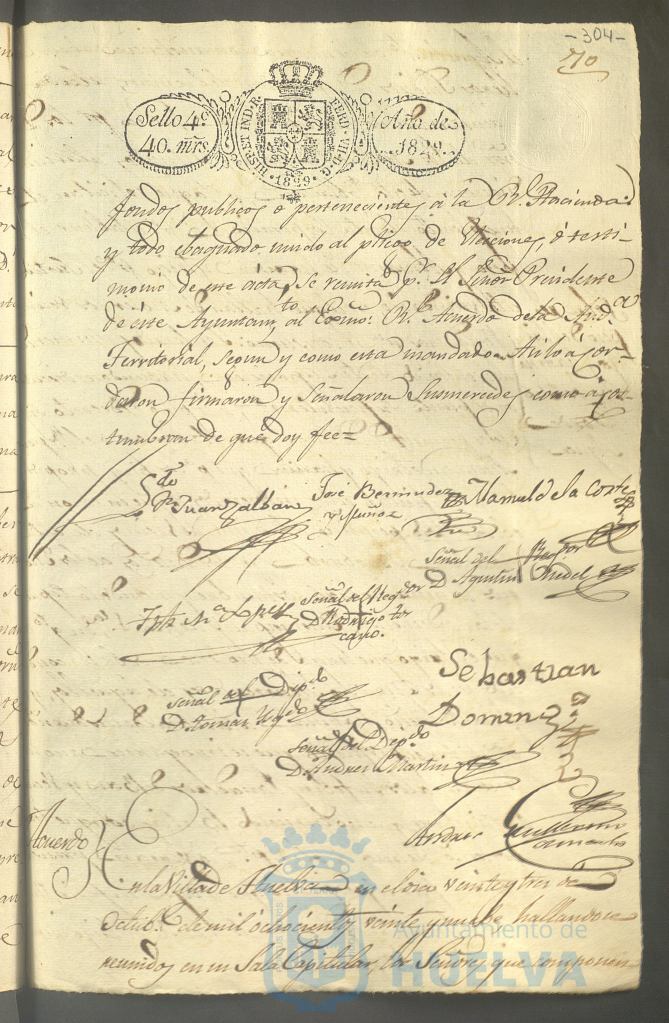 -304-
70
Sello 4º
40. mrs.
HISP. ET IND. R. FERD. VII. D. G.
1829
Año de
1829.
fondos publicos o pertenecientes à la Rl. Hacienda:
y todo original unido al pliego de Elecciones, ó testi-
monio de este acta, se remita pr. el Señor Presidente
de este Ayuntamto. al Exmo. Rl. Acuerdo de la Auda.
Territorial, segun y como esta mandado. Asi lo acor-
daron firmaron y señalaron Susmercedes como acos-
tumbran de que doy fee=
Juan Zalbán
José Bermudez
y Muñoz
Manuel de la Corte
Señal del Regor
D. Agustin Medel
Lopez
Señal del Regor
D. Rodrigo Tos
cano.
Señal del Dipdo
D. Tomas
Sebastian
Doming
Señal del Dipdo
D. Andres Martin
Andres Guillermo
Acuerdo
En la Villa de Huelva en el dia veinte y tres de
Octubre de mil ochocientos veinte y nueve hallandose
reunidos en su Sala Capitular, los Señores que componen
Ayuntamiento de
HUELVA